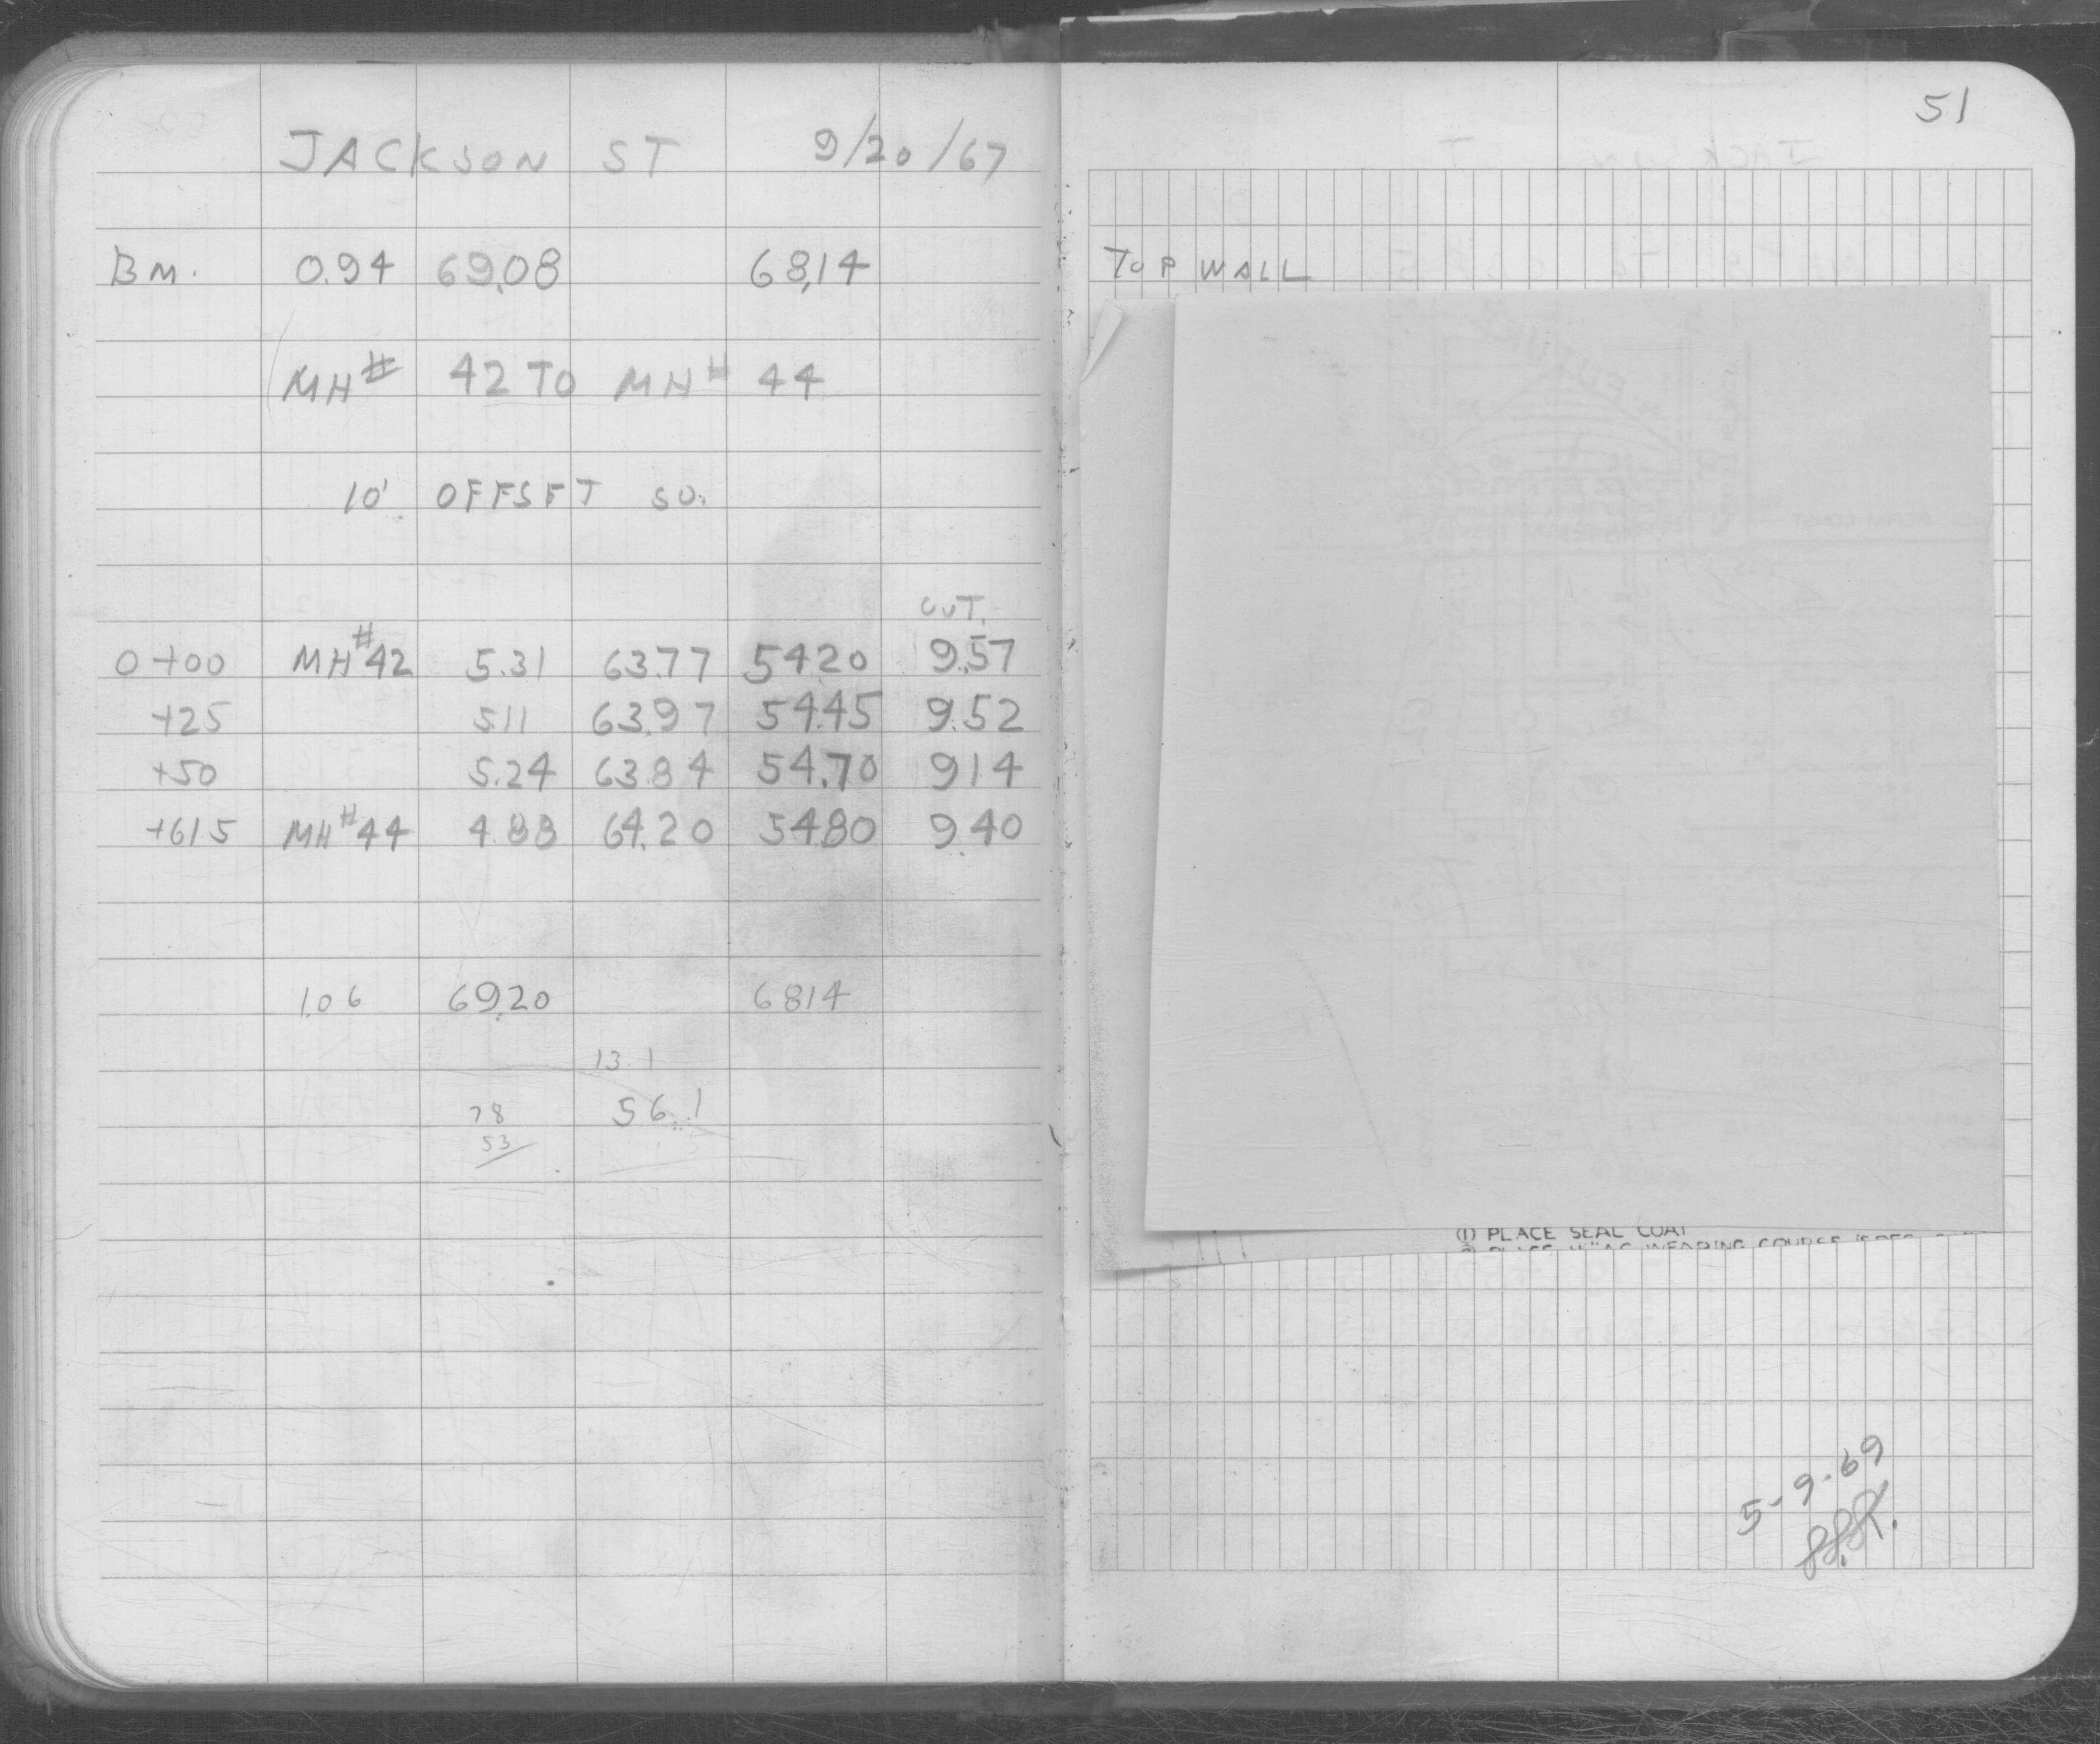 JACKSON ST 9/20/67
B.M. 0.94 69.08 68.14
MH# 42 TO MH# 44
10' OFFSET SO.
CUT.
0+00 MH#42 5.31 63.77 54.20 9.57
+25 5.11 63.97 54.45 9.52
+50 5.24 63.84 54.70 9.14
+61.5 MH#44 4.88 64.20 54.80 9.40
1.06 69.20 68.14
13.1
78 56.1
53
51
TOP WALL
(1) PLACE SEAL COAT
5-9-69